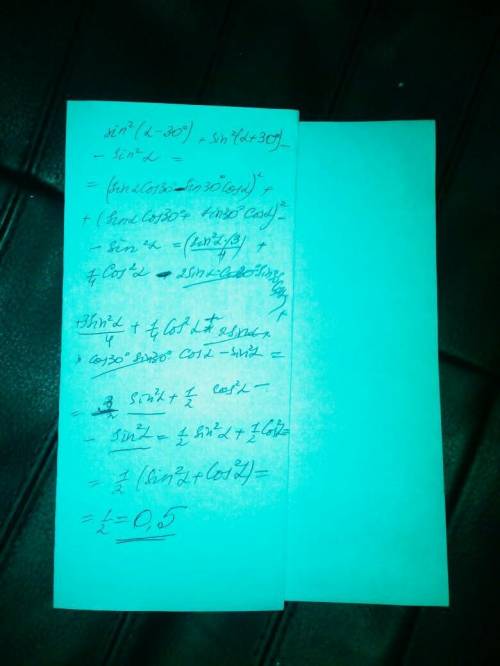 sin²(α-30°) + sin²(α+30°)-
- sin²α =
= (sinα cos30° - sin30° cosα)² +
+ (sinα cos30° + sin30° cosα)² -
- sin²α = (sin²α·3/4) +
1/4 cos²α - 2sinα cos30° sin30°
+ 3sin²α/4 + 1/4 cos²α + 2sinα ×
× cos30° sin30° cosα - sin²α =
= 3/2 sin²α + 1/2 cos²α -
- sin²α = 1/2 sin²α + 1/2 cos²α =
= 1/2 (sin²α + cos²α) =
= 1/2 = 0,5